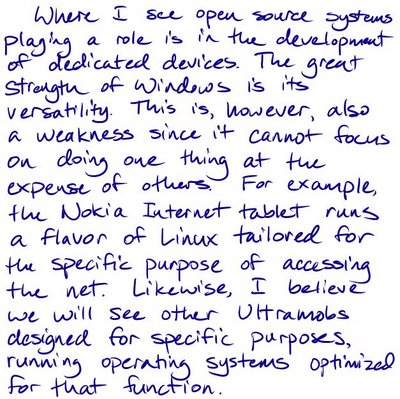 Where I see open source systems
playing a role is in the development
of dedicated devices. The great
strength of Windows is its
versatility. This is, however, also
a weakness since it cannot focus
on doing one thing at the
expense of others. For example,
the Nokia Internet tablet runs
a flavor of Linux tailored for
the specific purpose of accessing
the net. Likewise, I believe
we will see other Ultramobs
designed for specific purposes,
running operating systems optimized
for that function.